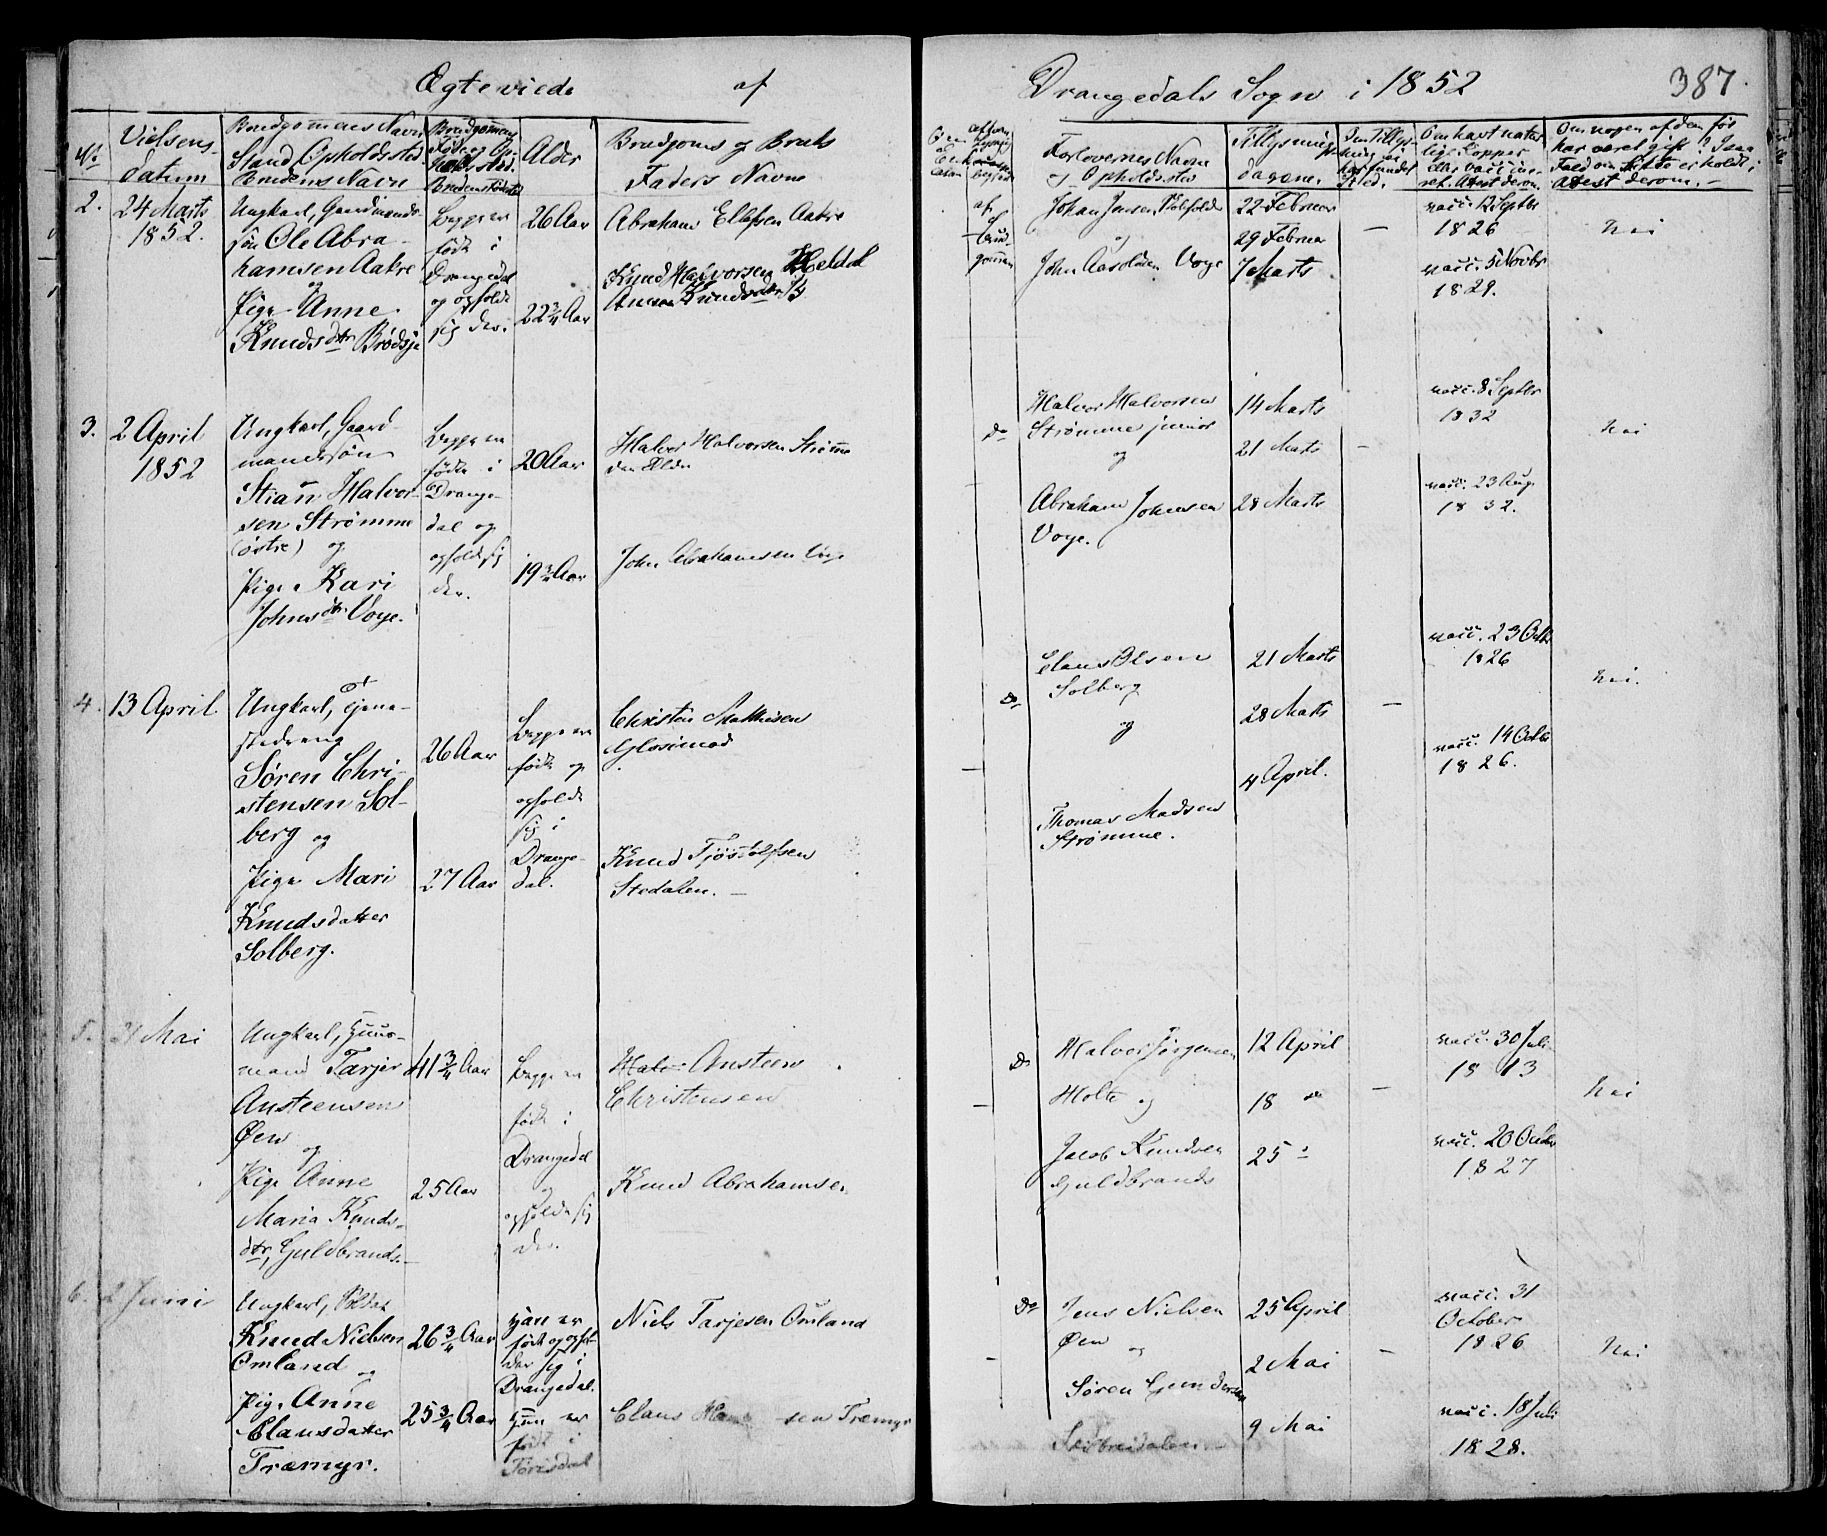 Egteviede af Drangedals Sogn i 1852 387.
No
Vielsens-
datum
Brudgommens Navn
Stand, Opholdssted
Brudens Navn
Alder
Brudgoms og Bruds
Faders Navne
Forlovernes Navne
og Opholdssted
Tillysnings-
dagene.
Om nogen af dem før
har været gift? I saa
Fald om Skifte er holdt;
Attest derom.
2.
24 Marts
1852.
Ungkarl, Gaardmands-
søn Ole Abra-
hamsen Aakre
og
Pige Anne
Knudsdtr Brødsjø
Begge er
født i
Drangedal
og opholde
sig der.
26 Aar
22 3/4 Aar
Abraham Ellefsen Aakre
Knud Halvorsen Heldal
af
Brud-
gommen
Johan Jensen
og
John Aasoldsen Voje
22 Februar
29 Februar
7 Marts
–
vacc. 12 Septbr
1826
vacc. 5 Novbr
1829.
Nei
3.
2 April
1852
Ungkarl, Gaard-
mandssøn
Stian Halvor-
sen Strømme
(østre) og
Pige Kari
Johnsdtr Voje.
Begge er
født i
Drange-
dal og
opholde sig
der.
20 Aar
19 3/4 Aar
Halvor Halvorsen Strømme
den Ældre
John Abrahamsen Voje
Do
Halvor Halvorsen
Strømme junior
og
Abraham Johnsen
Voje.
14 Marts
21 Marts
28 Marts
–
vacc. 8 Septbr
1832
vacc. 23 Aug.
1832.
Nei
4.
13 April.
Ungkarl, Tjene-
stedreng
Søren Chri-
stensen Sol-
berg og
Pige Mari
Knudsdatter
Solberg.
26 Aar
27 Aar
Begge er
født og
opholde
sig i
Drange-
dal.
Christen Mathisen
Knud Tjøstolfsen
Stedalen. –
Do
Claus Olsen
Solberg
og
Thomas Madsen
Strømme.
21 Marts
28 Marts
4 April.
–
vacc. 23 Octb
1826
vacc. 14 Octbr
1826.
Nei.
5.
31 Mai
Ungkarl, Huus-
mand Tarjer
Ansteensen
Øen
og
Pige Anne
Maria Knuds-
dtr, Guldbrands.
41 3/4 Aar
25 Aar
Begge er
født i
Drangedal
og
opholde sig
der.
Ansteen
Christensen
Knud Abrahamsen
Do
Halvor Jørgensen
Holte og
Jacob Knudsen
Guldbrands
12 April
18 do
25 "
–
vacc. 30 Juli
1813
vacc. 20 Octbr
1827
Nei
6.
2 Juni
Ungkarl, Soldat
Knud Nielsen
Omland
og
Pige Anne
Clausdatter
Træmyr.
26 3/4 Aar
25 3/4 Aar
Han er
født og ophol-
der sig i
Drangedal.
Hun er
født i
Tørisdal
Niels Tarjesen Omland
Claus Hansen Træmyr
Do
Jens Nielsen
Øen
og
Søren Gundersen
25 April
2 Mai
9 Mai
–
vacc. 31
October
1826
vacc. 18 Juli
1828.
Nei